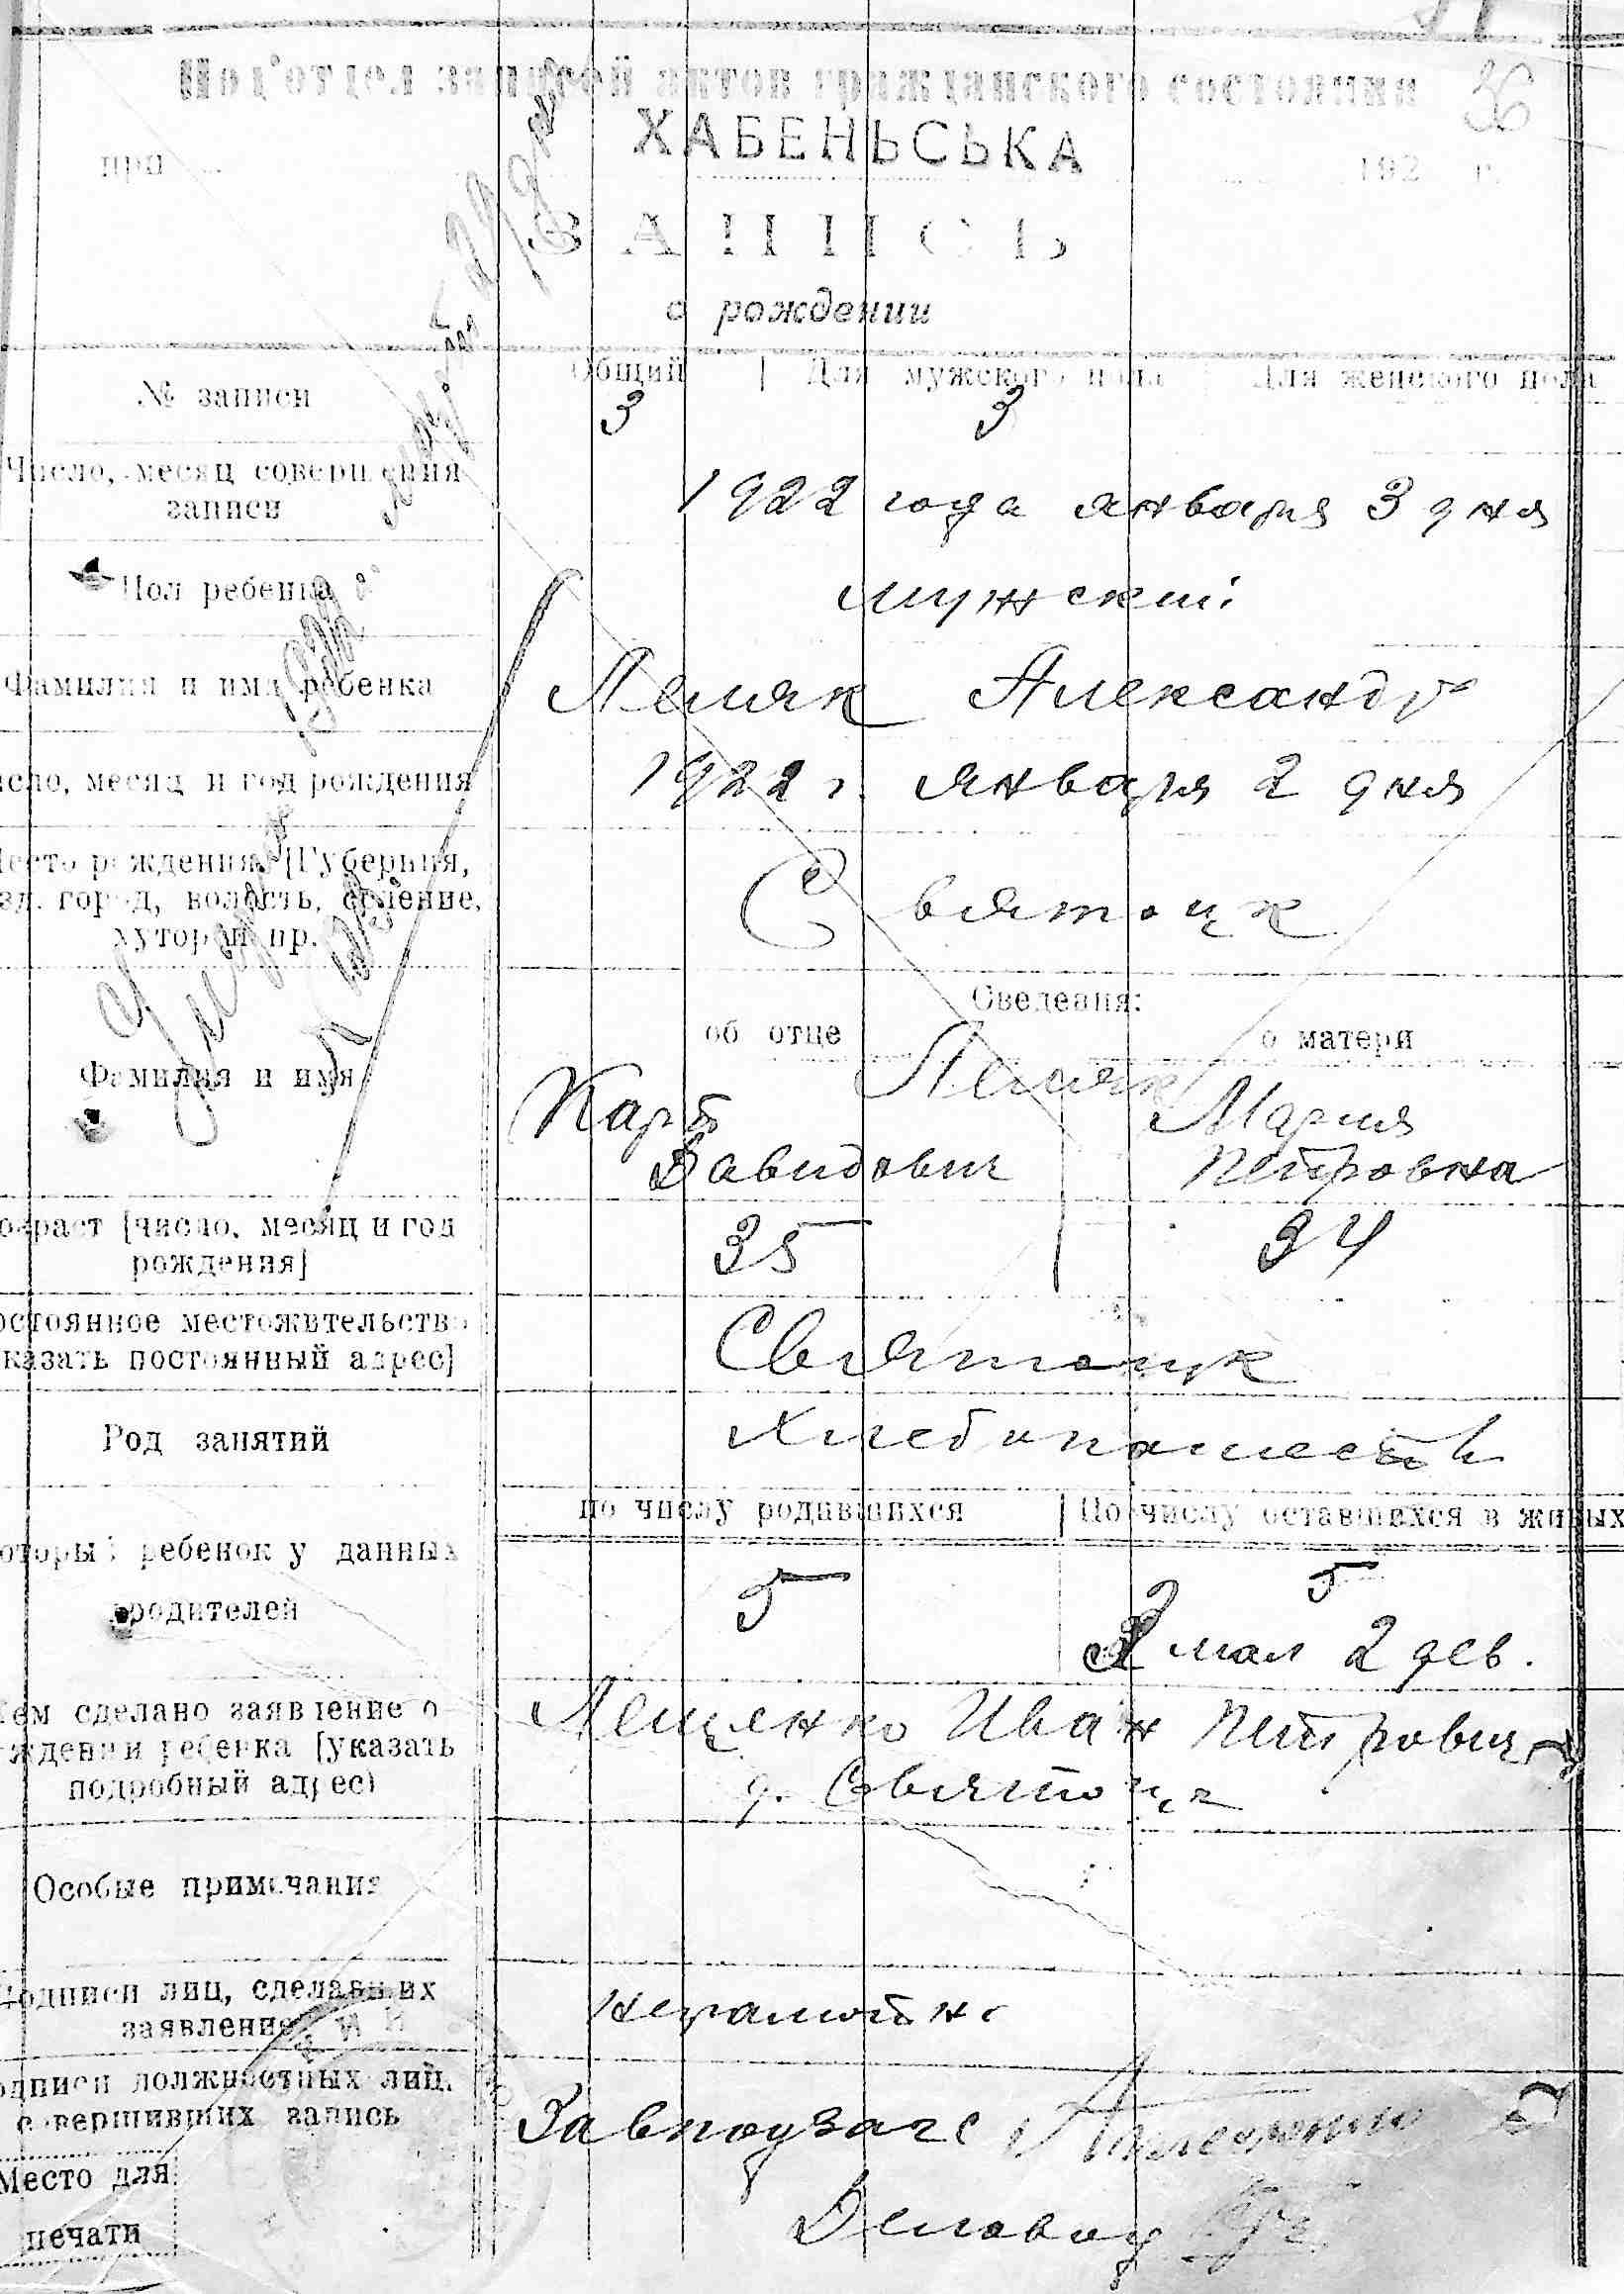 36
Под'отдел записей актов гражданского состояния
ХАБЕНЬСЬКА
при 192 г.
ЗАПИСЬ
о рождении
№ записи
Общий | Для мужского пола | Для женского пола
3 3
Число, месяц совершения
записи
1922 года января 3 дня
Пол ребенка
мужский
Фамилия и имя ребенка
Лемяк Александр
число, месяц и год рождения
1922 г. января 2 дня
Место рождения [Губерния,
уезд. город, волость, селение,
хутор и пр.
Святоцк
Сведения:
об отце о матери
Фамилия и имя
Лемяк
Карп Мария
Давидович Петровна
Возраст [число, месяц и год
рождения]
35 34
Постоянное местожительство
[указать постоянный адрес]
Святоцк
Род занятий
Хлебопашеств
по числу родившихся | По числу оставшихся в живых
который ребенок у данных
родителей
5 5
мал 2 дев.
Кем сделано заявление о
рождении ребенка [указать
подробный адрес)
Лещенко Иван Петрович
д. Святоцк
Особые примечания
Подписи лиц, сделавших
заявление
неграмотн
Подписи должностных лиц,
совершивших запись
Завподзагс
Место для
печати
Деловод